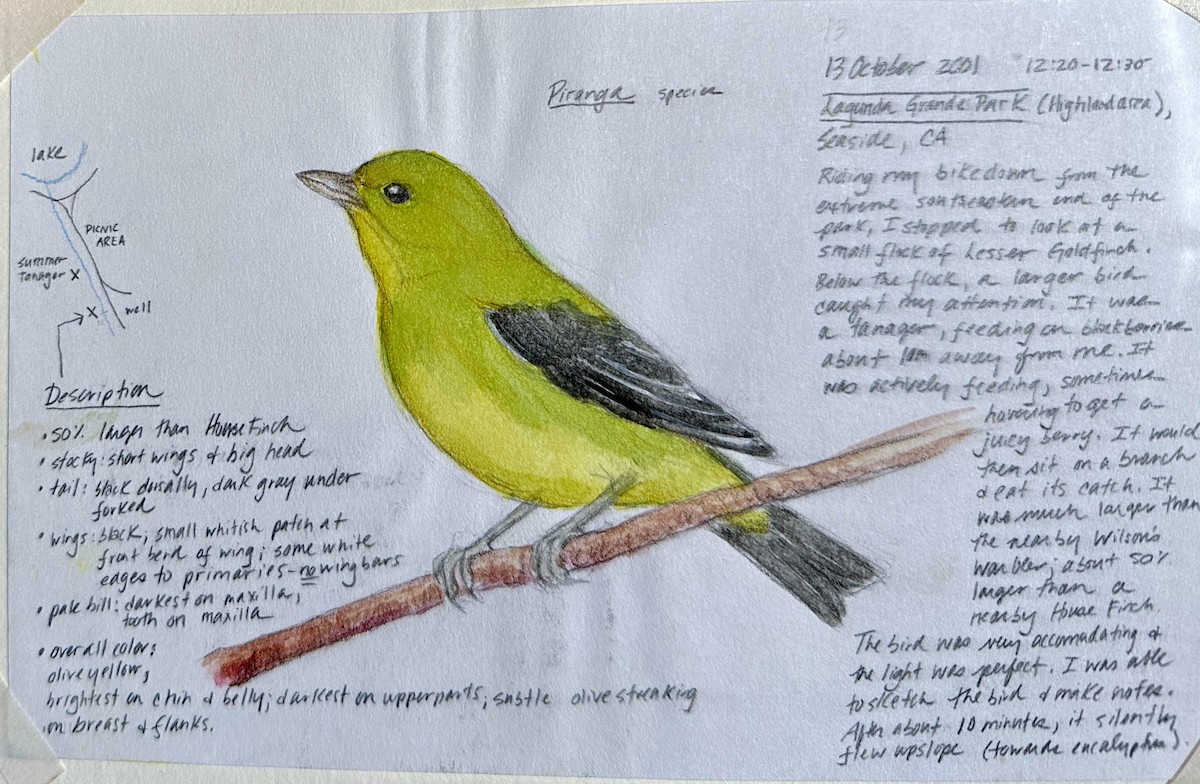 Piranga species
13
13 October 2001 12:20-12:30
Lagunda Grande Park (Highland area),
Seaside, CA
Riding my bike down from the
extreme southeastern end of the
park, I stopped to look at a
small flock of Lesser Goldfinch.
Below the flock, a larger bird
caught my attention. It was
a tanager, feeding on blackberries
about 10m away from me. It
was actively feeding, sometimes
hovering to get a
juicy berry. It would
then sit on a branch
& eat its catch. It
was much larger than
the nearby Wilson's
Warbler; about 50%
larger than a
nearby House Finch.
The bird was very accomadating &
the light was perfect. I was able
to sketch the bird & make notes.
After about 10 minutes, it silently
flew upslope (towards eucalyptus).
lake
PICNIC
AREA
summer
Tanager X
X
well
Description
• 50% larger than House Finch
• stocky: short wings & big head
• tail: black dorsally, dark gray under
forked
• wings: black; small whitish patch at
front bend of wing; some white
edges to primaries - no wingbars
• pale bill: darkest on maxilla,
tooth on maxilla
• overall color:
olive yellow,
brightest on chin & belly; darkest on upperparts; subtle olive streaking
on breast & flanks.